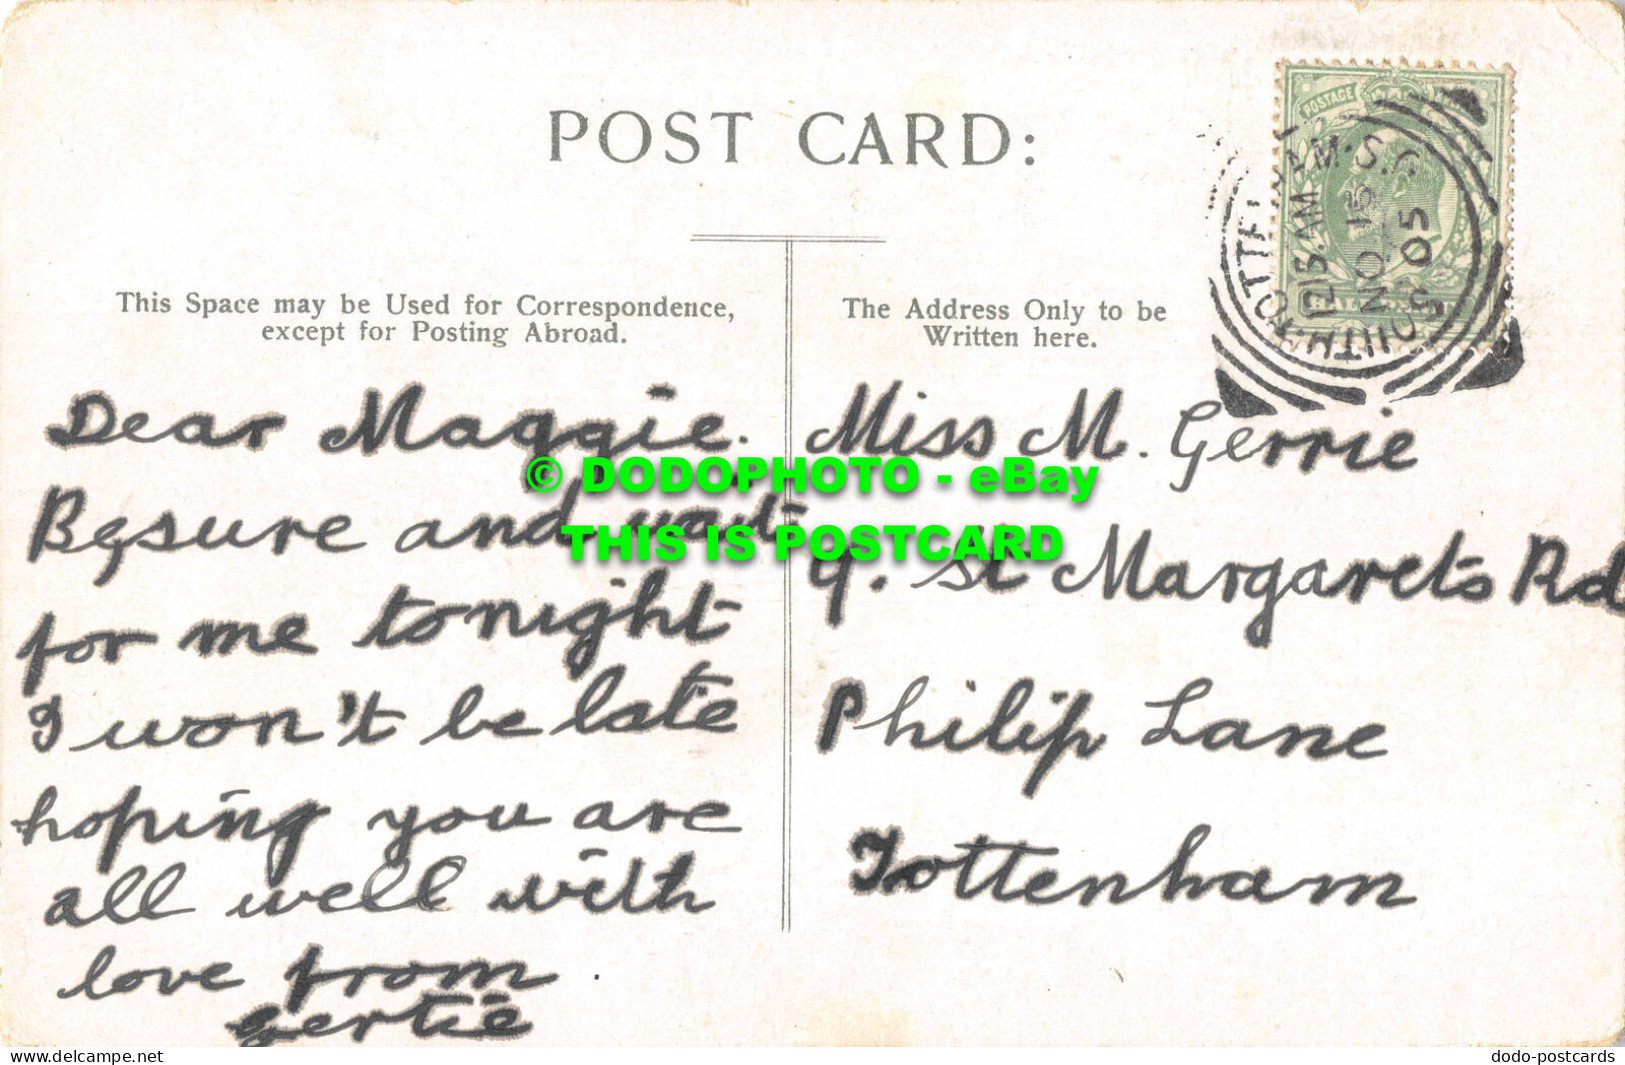 POST CARD:
This Space may be Used for Correspondence,
except for Posting Abroad.
The Address Only to be
Written here.
POSTAGE
HALFPENNY
SOUTH TOTTENHAM. S.O.
12.15 AM
NO 15
05
Dear Maggie.
Besure and wait
for me tonight
I won't be late
hoping you are
all well with
love from
Gertie
Miss M. Gerrie
9. St Margarets Rd
Philip Lane
Tottenham
© DODOPHOTO - eBay
THIS IS POSTCARD
delcampe.net
dodo-postcards